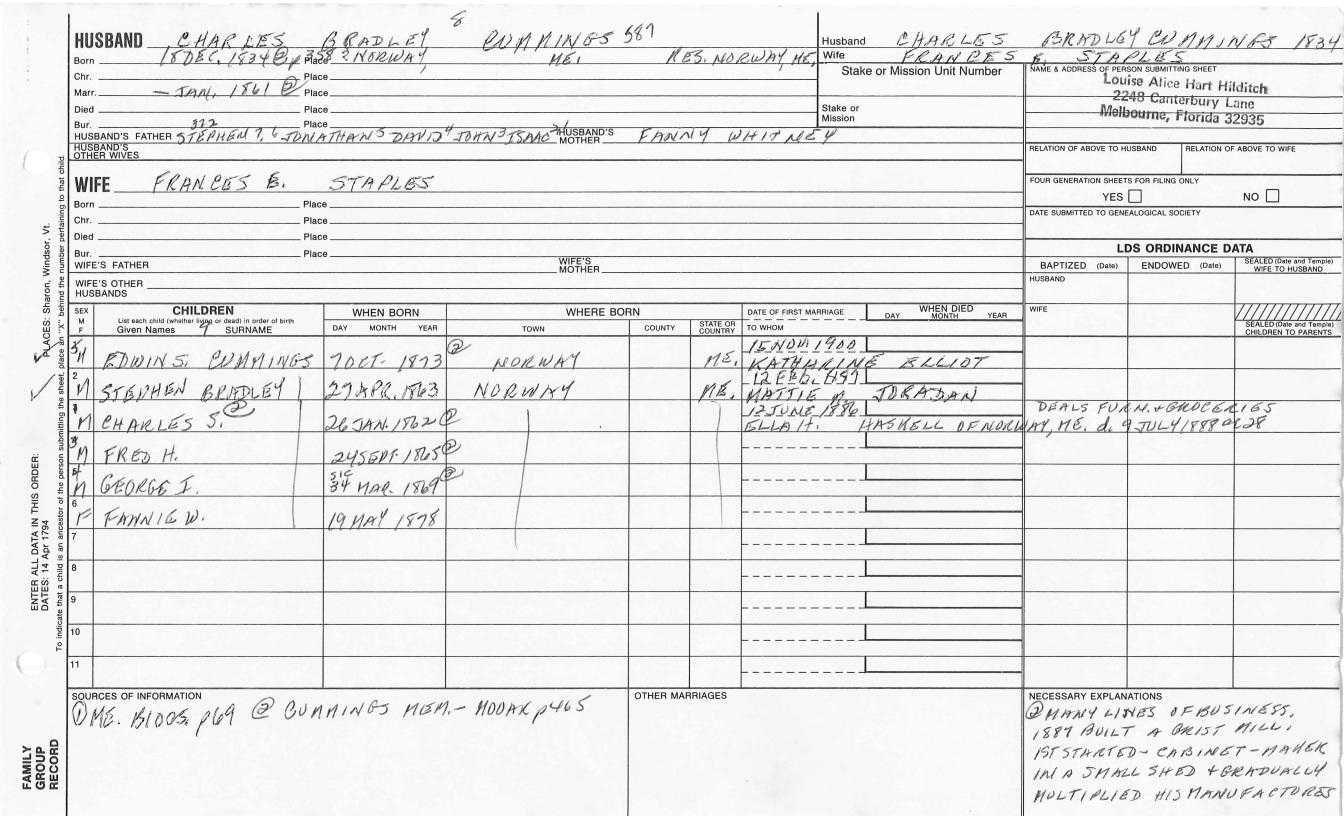 8
HUSBAND CHARLES BRADLEY CUMMINGS 587
Born 18 DEC. 1834 ② p 358? Place NORWAY, ME. RES. NORWAY, ME.
Chr. Place
Marr. – JAN. 1861 ② Place
Died Place
Bur. Place
322
HUSBAND'S FATHER STEPHEN 7, 6 JONATHAN 5 DAVID 4 JOHN 3 ISAAC 2-1 HUSBAND'S MOTHER FANNY WHITNEY
HUSBAND'S OTHER WIVES
WIFE FRANCES E. STAPLES
Born Place
Chr. Place
Died Place
Bur. Place
WIFE'S FATHER WIFE'S MOTHER
WIFE'S OTHER HUSBANDS
Husband CHARLES BRADLEY CUMMINGS 1834
Wife FRANCES E. STAPLES
Stake or Mission Unit Number
Stake or Mission
NAME & ADDRESS OF PERSON SUBMITTING SHEET
Louise Alice Hart Hilditch
2248 Canterbury Lane
Melbourne, Florida 32935
RELATION OF ABOVE TO HUSBAND RELATION OF ABOVE TO WIFE
FOUR GENERATION SHEETS FOR FILING ONLY
YES NO
DATE SUBMITTED TO GENEALOGICAL SOCIETY
LDS ORDINANCE DATA
BAPTIZED (Date) ENDOWED (Date) SEALED (Date and Temple) WIFE TO HUSBAND
HUSBAND
WIFE
SEALED (Date and Temple) CHILDREN TO PARENTS
SEX M F CHILDREN WHEN BORN WHERE BORN DATE OF FIRST MARRIAGE WHEN DIED
List each child (whether living or dead) in order of birth
Given Names SURNAME DAY MONTH YEAR TOWN COUNTY STATE OR COUNTRY TO WHOM DAY MONTH YEAR
15 NOV 1900
M EDWIN S. CUMMINGS 7 OCT. 1873 ② NORWAY ME. KATHARINE ELLIOT
2 M STEPHEN BRADLEY 27 APR. 1863 NORWAY ME. MATTIE M. JORADAN
12 JUNE 1886 DEALS FURN. + GROCERIES
M CHARLES S. ② 26 JAN. 1862 ② ELLA H. HASKELL OF NORWAY, ME. d. 9 JULY 1888 ae 28
M FRED H. 24 SEPT 1865 ②
SIC
M GEORGE I. 34 MAR. 1869 ②
6 F FANNIE W. 19 MAY 1878
7
8
9
10
11
SOURCES OF INFORMATION
① ME. BIOGS. p69 ② CUMMINGS MEM. – MOOAR p465
OTHER MARRIAGES
NECESSARY EXPLANATIONS
② MANY LINES OF BUSINESS.
1887 BUILT A GRIST MILL.
1ST STARTED – CABINET – MAKER
IN A SMALL SHED + GRADUALLY
MULTIPLIED HIS MANUFACTORES
PLACES: Sharon, Windsor, Vt.
ENTER ALL DATA IN THIS ORDER:
DATES: 14 Apr 1794
To indicate that a child is an ancestor of the person submitting the sheet, place an "X" behind the number pertaining to that child.
FAMILY GROUP RECORD